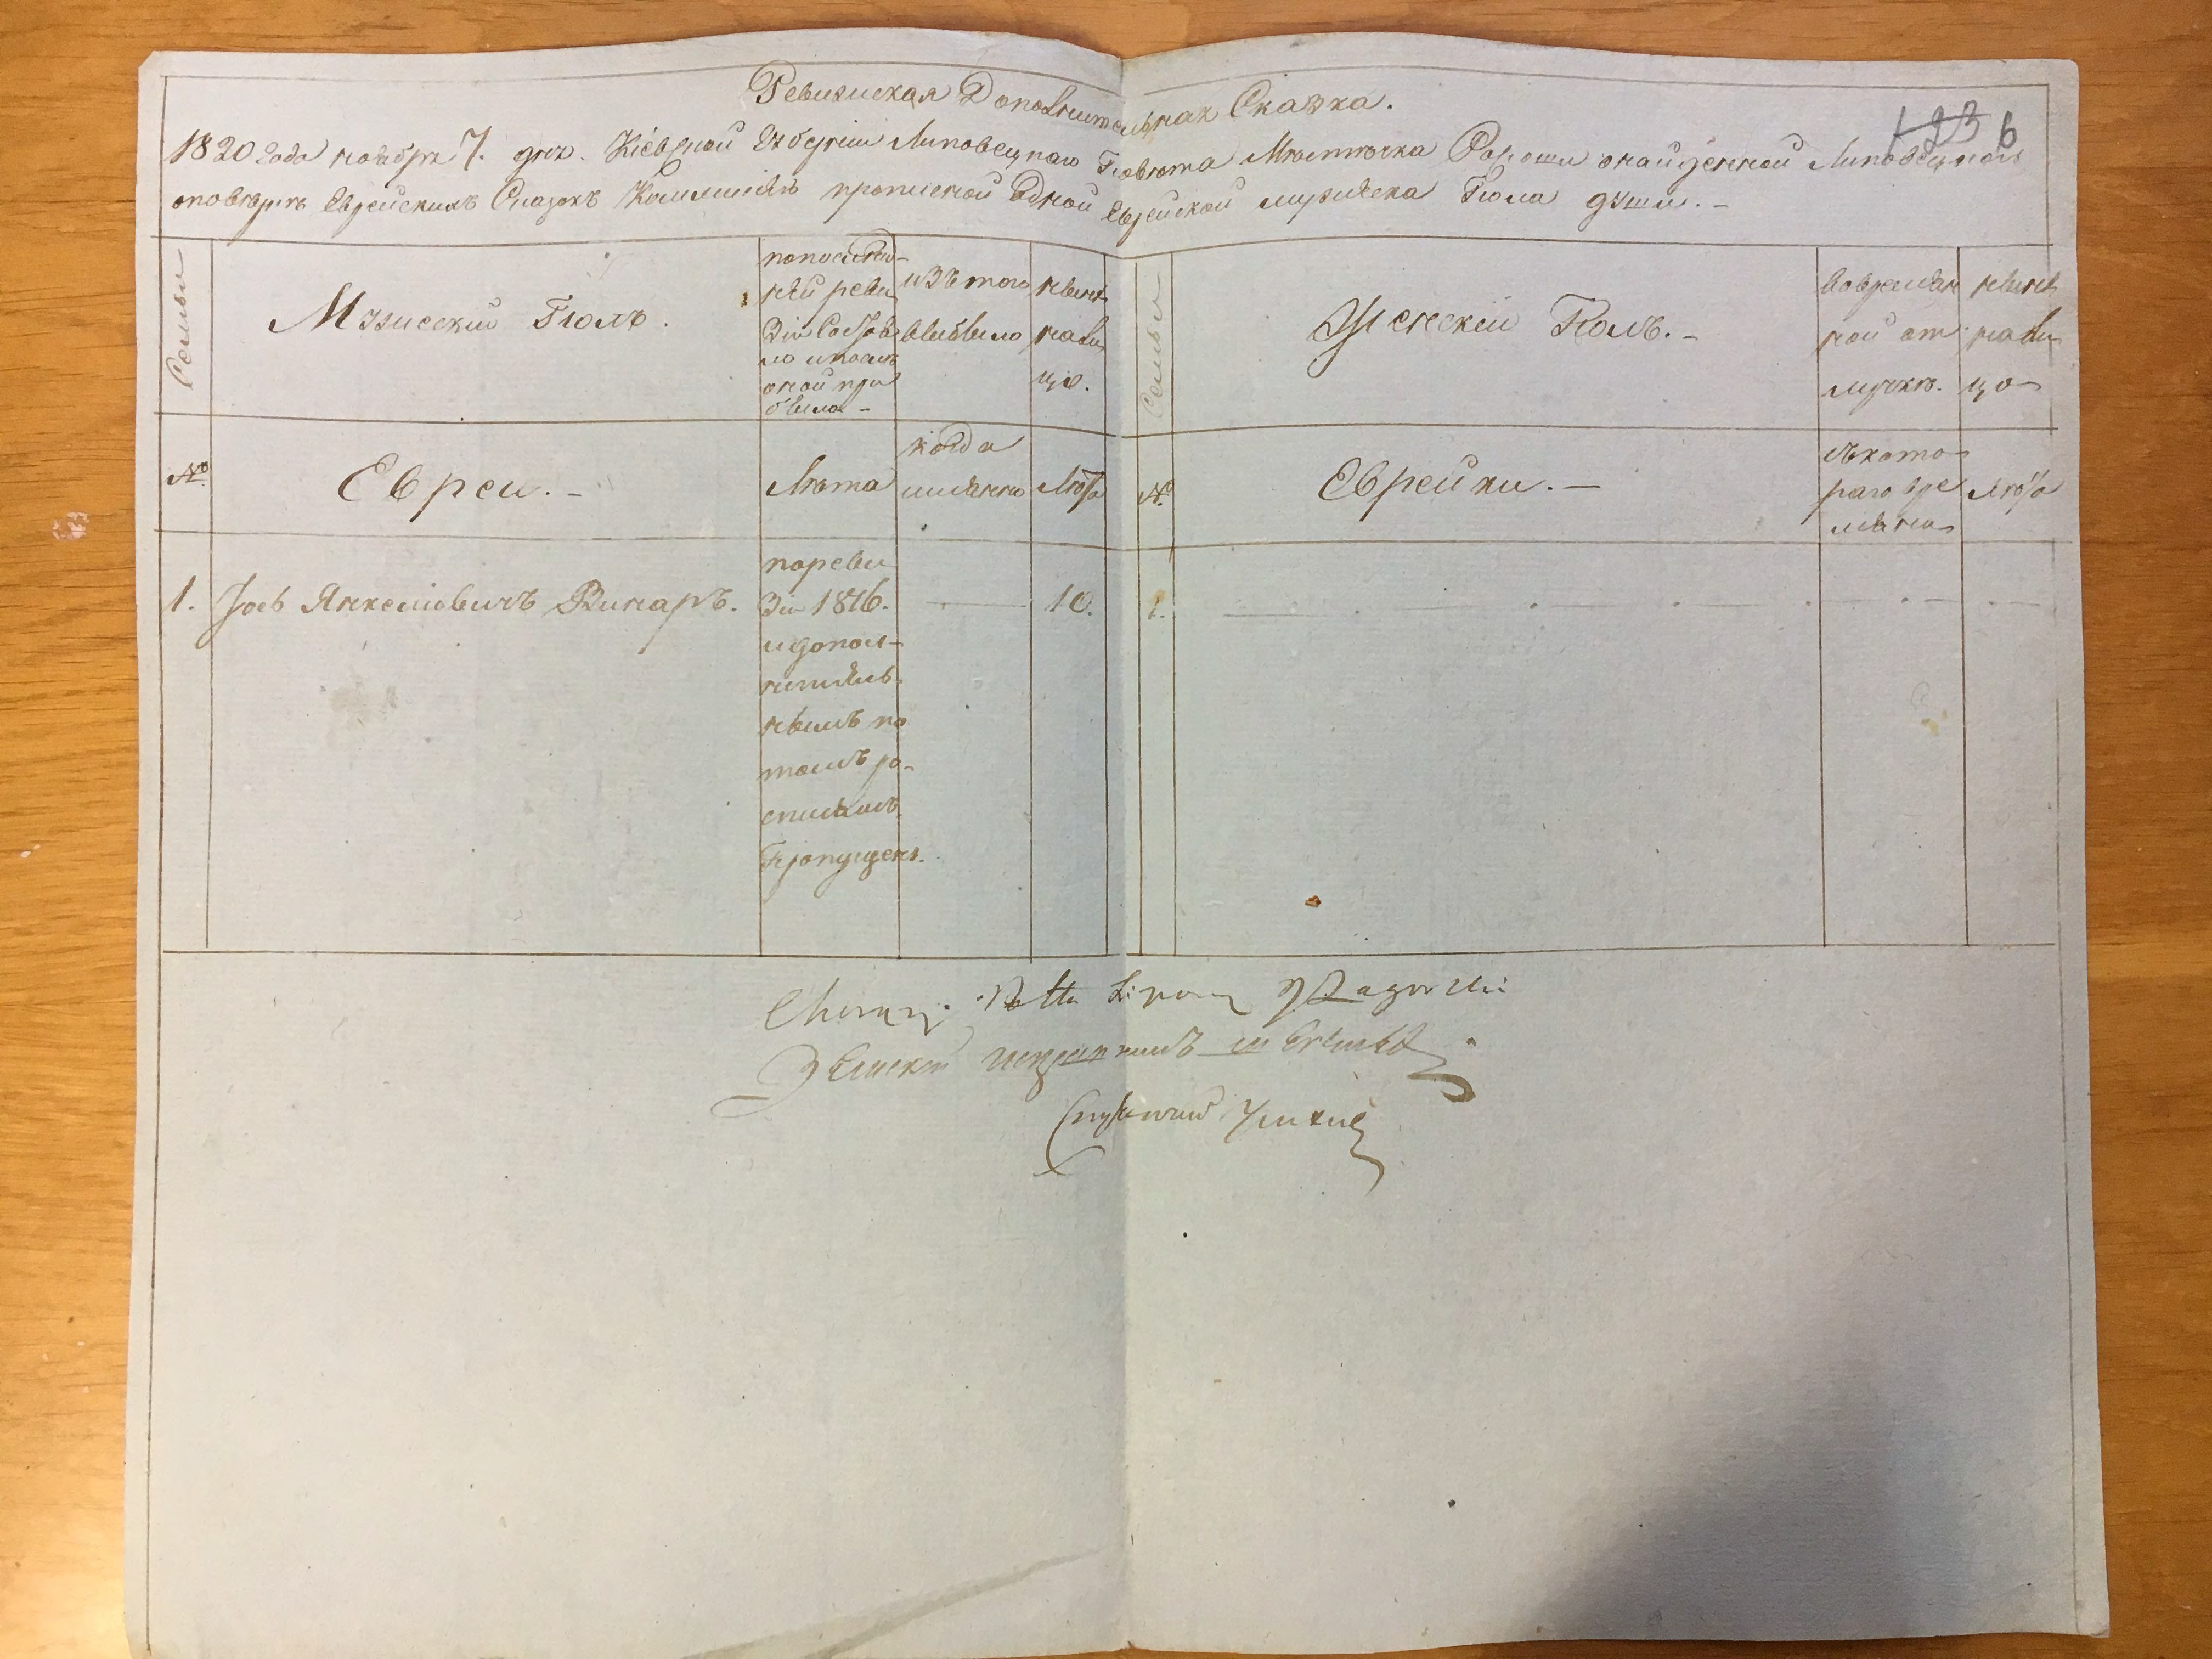 Ревизская Дополнительная Сказка.
123 6
1820 года ноября 7. дня. Кіевской Губерніи Липовецкаго Повѣта Мѣстечка Росоши о найденной Липовецкою
о повѣркѣ Еврейскихъ Сказокъ Комиссіею прописной одной Еврейской мужеска Пола души. -
Семьи
Мужескій Полъ.
по послѣд-
ней реви
зіи состоя
ло и послѣ
оной при
было -
изъ того
выбыло
нынѣ
на ли
цо.
Семьи
Женскій Полъ. -
во времян
ной от
лучкѣ.
нынѣ
на ли
цо
№
Евреи. -
Лѣта
когда
именно
Лѣта
№
Еврейки. -
съ кото
раго вре
мени
лѣта
1. Іось Янкелiовичъ Винаръ.
по реви
зіи 1816.
и допол-
нитель
нымъ по
томъ ро-
списямъ
Пропущенъ.
10.
1.